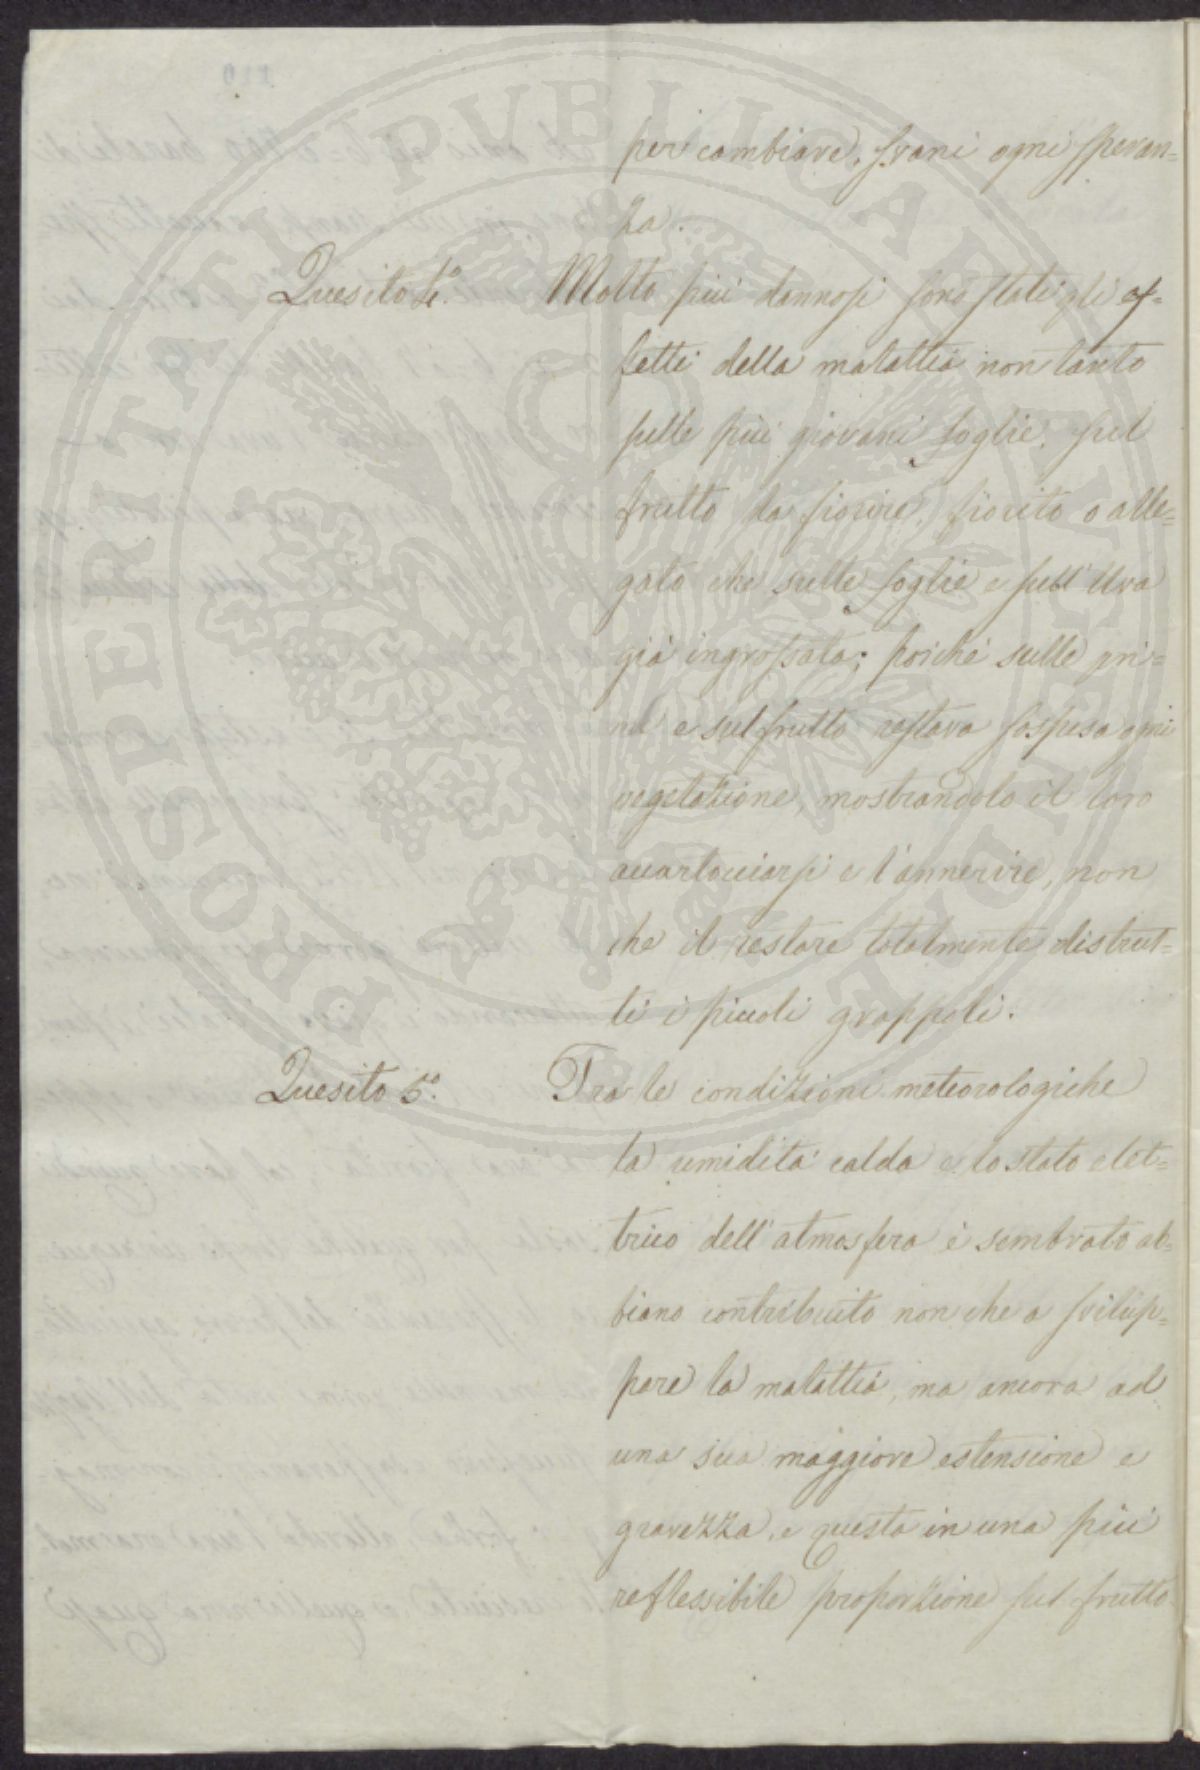 per cambiare, svanì ogni speran=
za.
Quesito 4°. Molto più dannosi sono stati gli ef=
fetti della malattia non tanto
sulle più giovani foglie, sul
frutto da fiorire, fiorito o alle=
gato che sulle foglie e sull'Uva
già ingrossata; poichè sulle pri=
me e sul frutto restava sospesa ogni
vegetazione, mostrandolo il loro
accartocciarsi e l'annerire, non
che il restare totalmente distrut=
ti i piccoli grappoli.
Quesito 5°. Tra le condizioni meteorologiche
la umidità calda e lo stato elet=
trico dell'atmosfera è sembrato ab=
biano contribuito non che a svilup=
pare la malattia, ma ancora ad
una sua maggiore estensione e
gravezza, e questa in una più
reflessibile proporzione sul frutto
PROSPERITATI PUBLICAE AUGENDAE